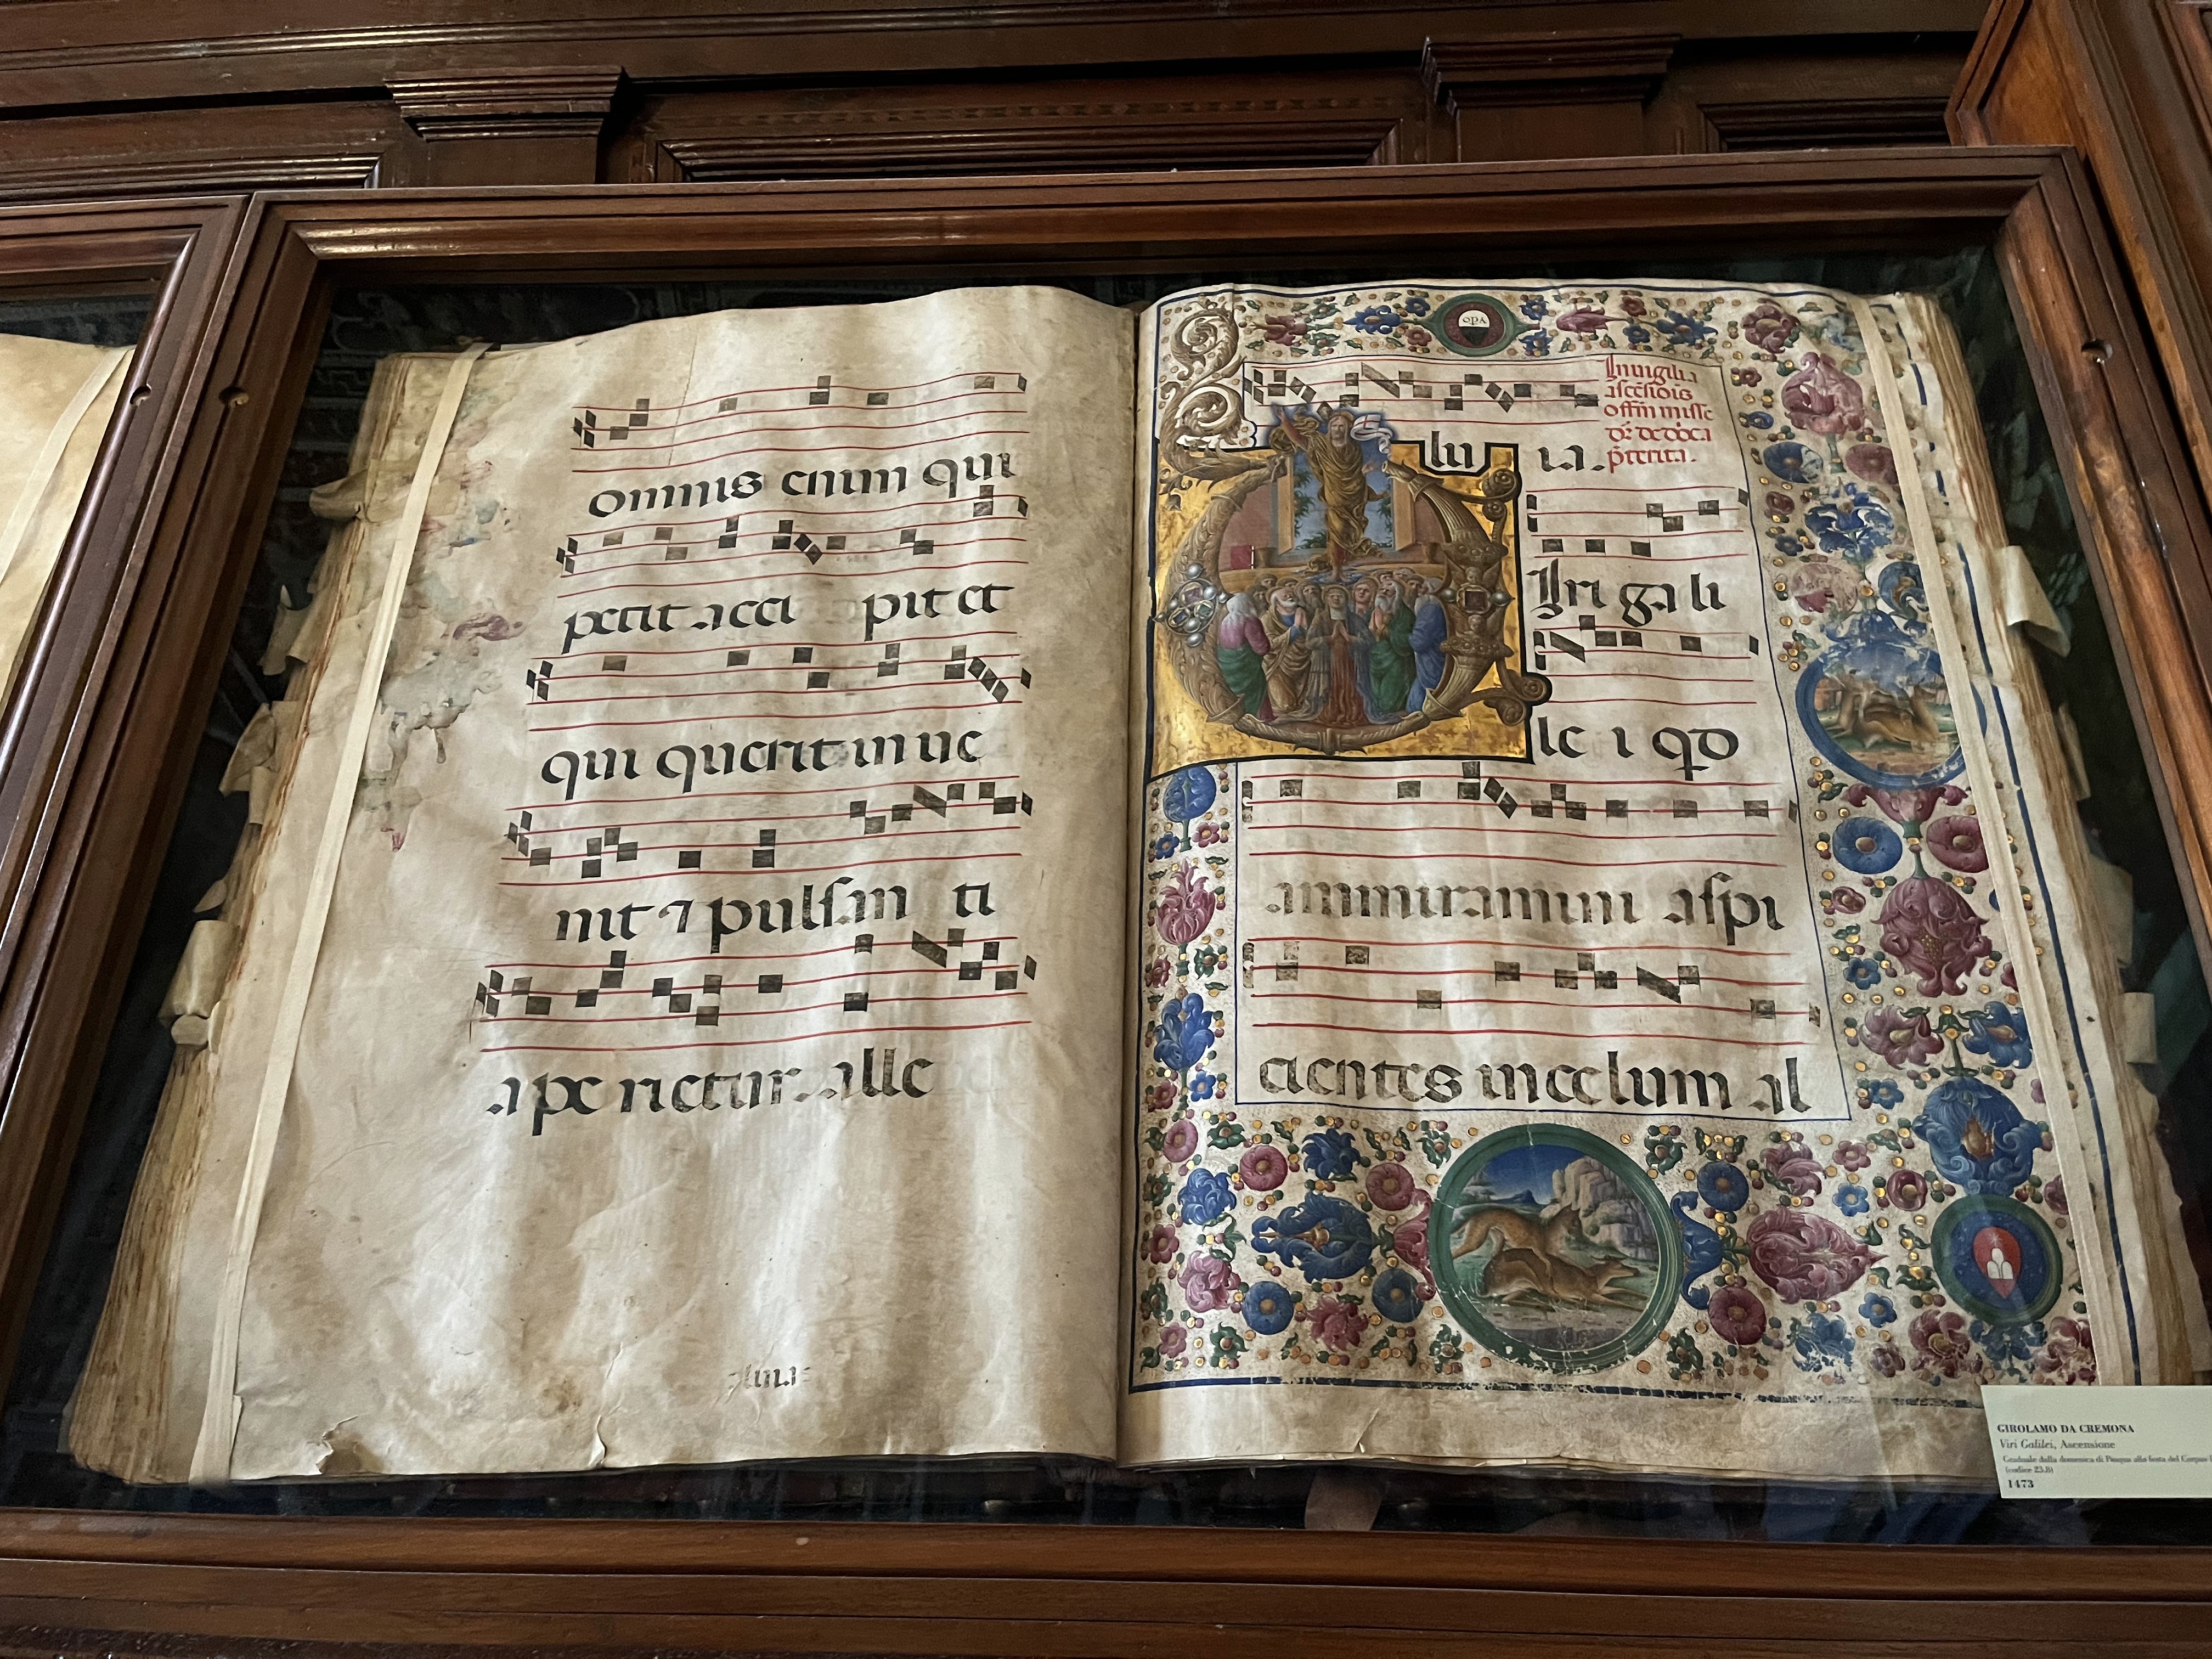 omnis enim qui
petit acci pit et
qui querit inue
nit ⁊ pulsan ti
a pe rietur. alle
OPA
lu ia.
In uigilia
ascẽsiõis
offm̃ misse
p̃terita.
Iri ga li
le i qd
ammiramini aspi
cientes in celum al
GIROLAMO DA CREMONA
Viri Galilei, Ascensione
Graduale dalla domenica di Pasqua alla festa del Corpus
(codice 23.8)
1473